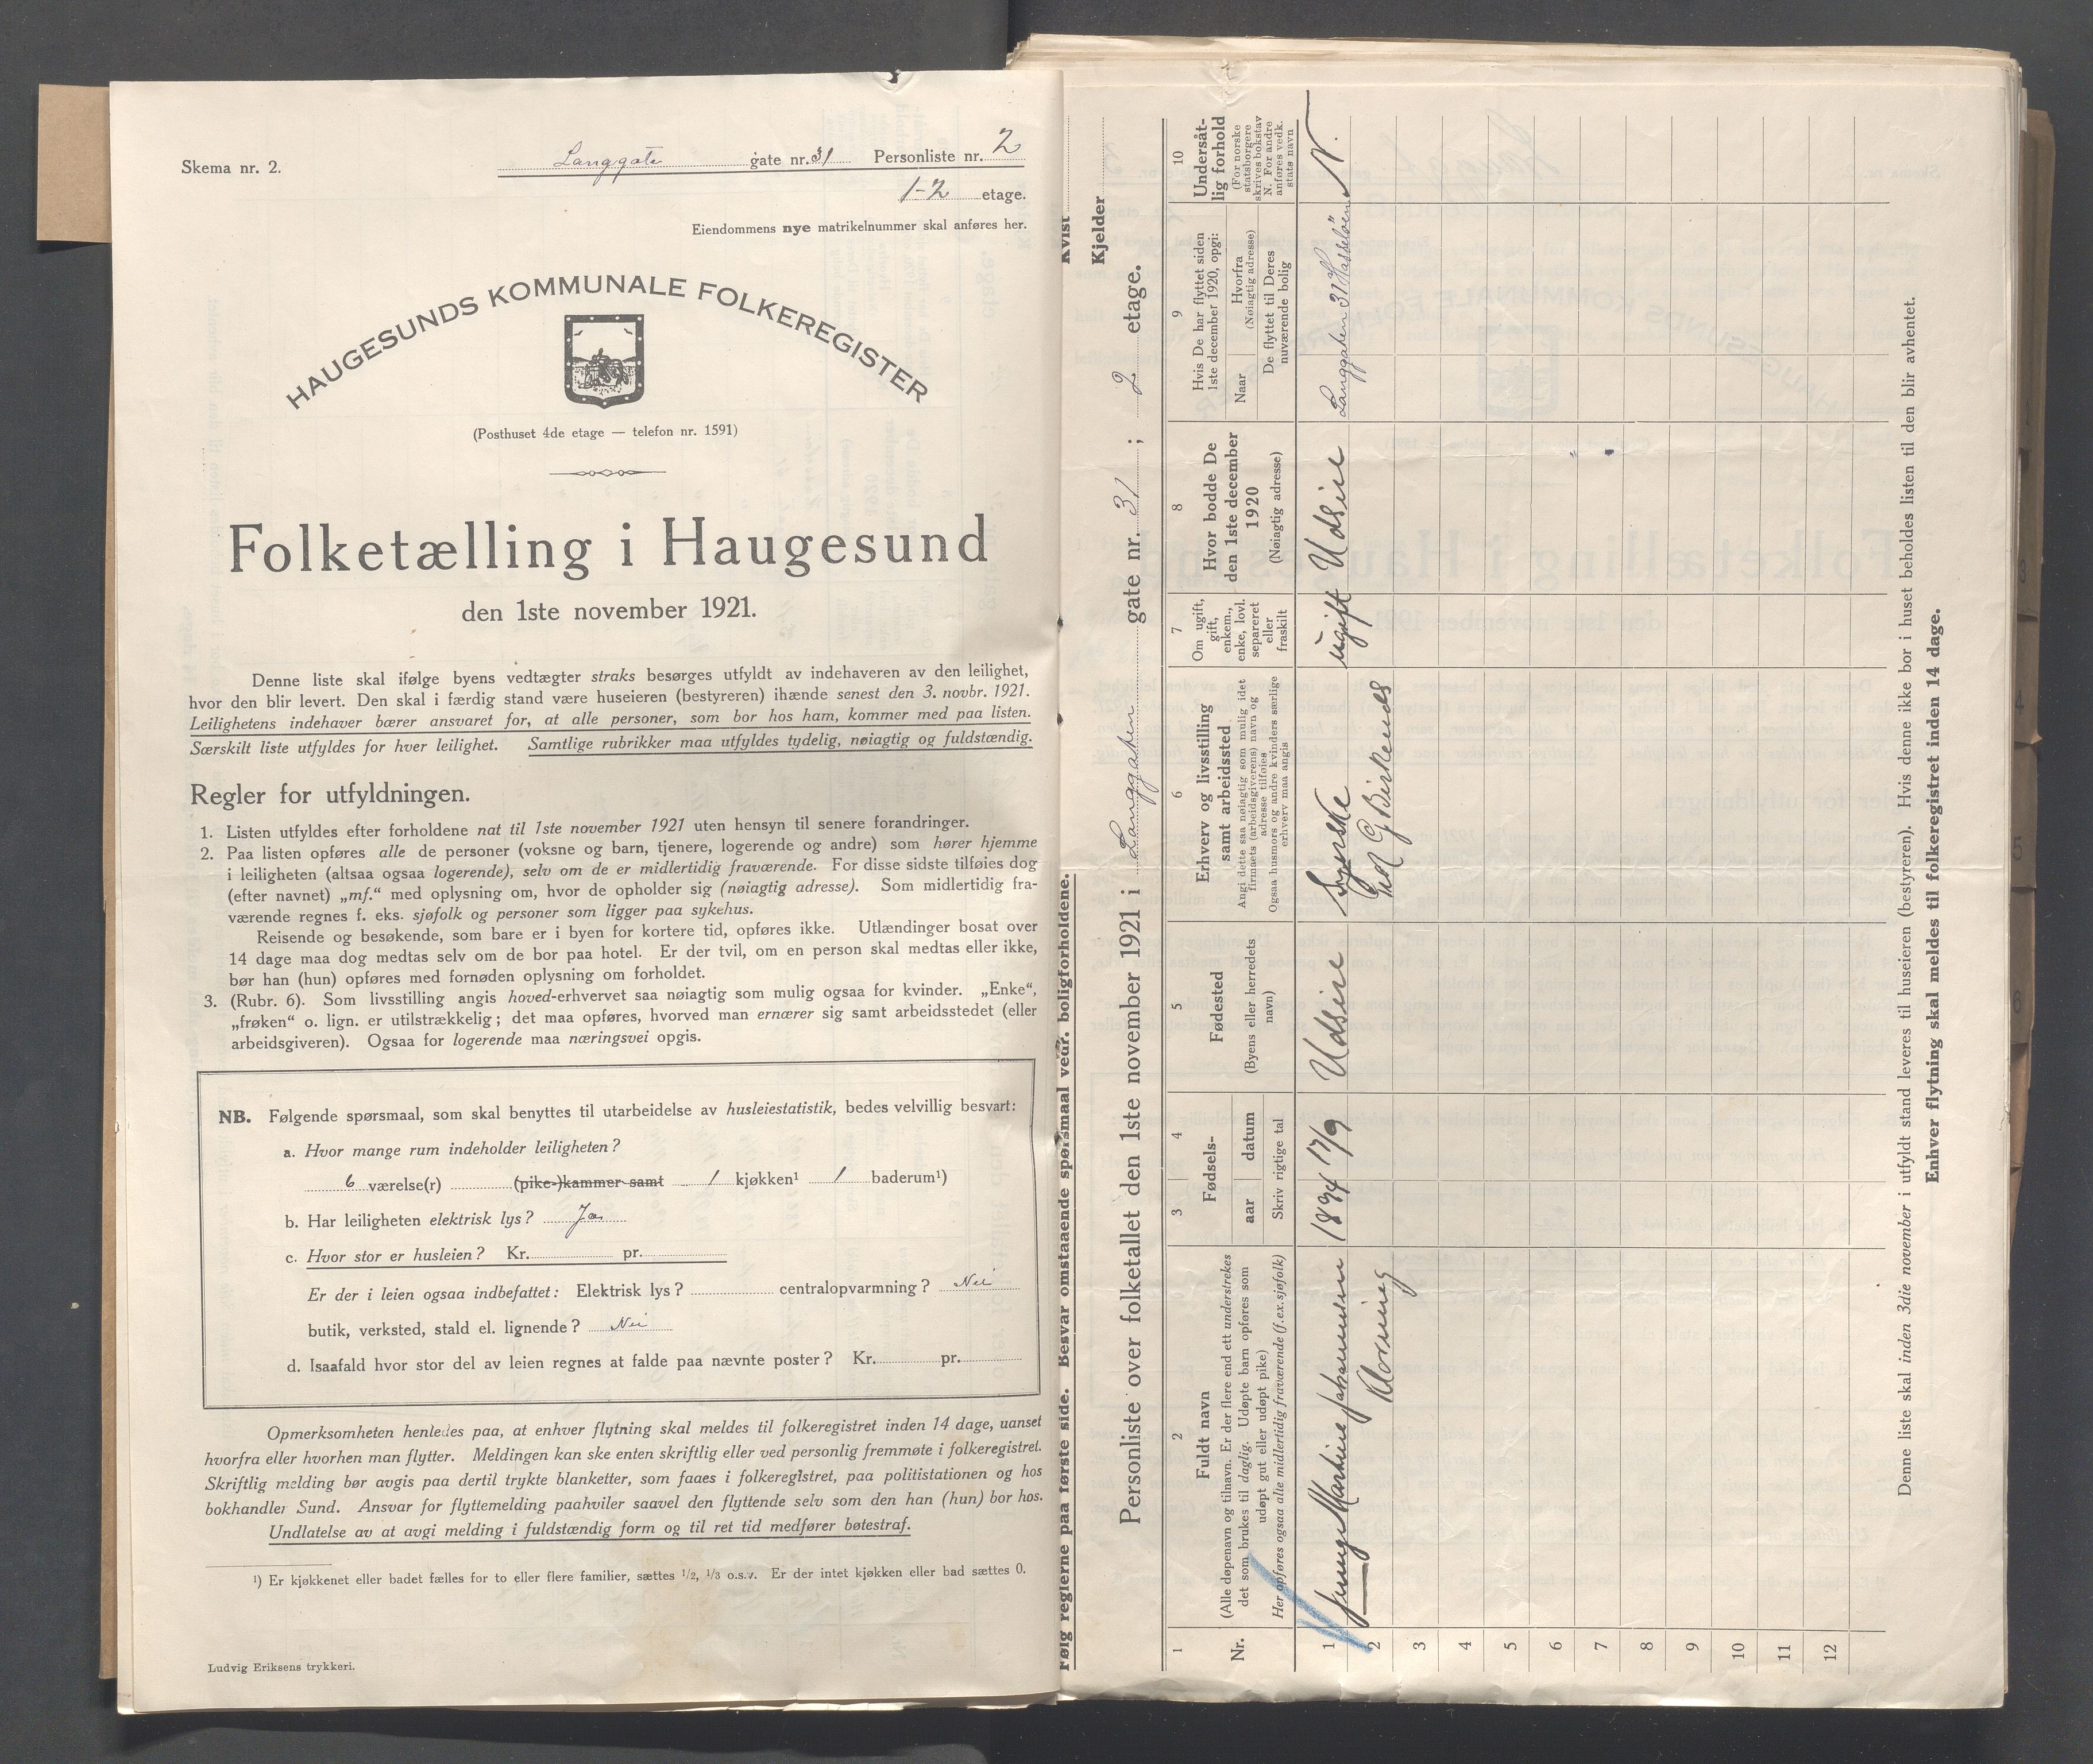 Skema nr. 2.
Langgate gate nr. 31 Personliste nr. 2
1-2 etage.
Eiendommens nye matrikelnummer skal anføres her.
HAUGESUNDS KOMMUNALE FOLKEREGISTER
(Posthuset 4de etage — telefon nr. 1591)
Folketælling i Haugesund
den 1ste november 1921.
Denne liste skal ifølge byens vedtægter straks besørges utfyldt av indehaveren av den leilighet,
hvor den blir levert. Den skal i færdig stand være huseieren (bestyreren) ihænde senest den 3. novbr. 1921.
Leilighetens indehaver bærer ansvaret for, at alle personer, som bor hos ham, kommer med paa listen.
Særskilt liste utfyldes for hver leilighet. Samtlige rubrikker maa utfyldes tydelig, nøiagtig og fuldstændig.
Regler for utfyldningen.
1. Listen utfyldes efter forholdene nat til 1ste november 1921 uten hensyn til senere forandringer.
2. Paa listen opføres alle de personer (voksne og barn, tjenere, logerende og andre) som hører hjemme
i leiligheten (altsaa ogsaa logerende), selv om de er midlertidig fraværende. For disse sidste tilføies dog
(efter navnet) „mf.“ med oplysning om, hvor de opholder sig (nøiagtig adresse). Som midlertidig fra-
værende regnes f. eks. sjøfolk og personer som ligger paa sykehus.
Reisende og besøkende, som bare er i byen for kortere tid, opføres ikke. Utlændinger bosat over
14 dage maa dog medtas selv om de bor paa hotel. Er der tvil, om en person skal medtas eller ikke,
bør han (hun) opføres med fornøden oplysning om forholdet.
3. (Rubr. 6). Som livsstilling angis hoved-erhvervet saa nøiagtig som mulig ogsaa for kvinder. „Enke“,
„frøken“ o. lign. er utilstrækkelig; det maa opføres, hvorved man ernærer sig samt arbeidsstedet (eller
arbeidsgiveren). Ogsaa for logerende maa næringsvei opgis.
NB. Følgende spørsmaal, som skal benyttes til utarbeidelse av husleiestatistik, bedes velvillig besvart:
a. Hvor mange rum indeholder leiligheten?
6 værelse(r) (pike-)kammer samt 1 kjøkken¹ 1 baderum¹)
b. Har leiligheten elektrisk lys? Ja
c. Hvor stor er husleien? Kr. pr.
Er der i leien ogsaa indbefattet: Elektrisk lys? centralopvarmning? Nei
butik, verksted, stald el. lignende? Nei
d. Isaafald hvor stor del av leien regnes at falde paa nævnte poster? Kr. pr.
Opmerksomheten henledes paa, at enhver flytning skal meldes til folkeregistret inden 14 dage, uanset
hvorfra eller hvorhen man flytter. Meldingen kan ske enten skriftlig eller ved personlig fremmøte i folkeregistret.
Skriftlig melding bør avgis paa dertil trykte blanketter, som faaes i folkeregistret, paa politistationen og hos
bokhandler Sund. Ansvar for flyttemelding paahviler saavel den flyttende selv som den han (hun) bor hos.
Undlatelse av at avgi melding i fuldstændig form og til ret tid medfører bøtestraf.
¹) Er kjøkkenet eller badet fælles for to eller flere familier, sættes 1/2, 1/3 o.s.v. Er der intet kjøkken eller bad sættes 0.
Ludvig Eriksens trykkeri.
Følg reglerne paa første side. Besvar omstaaende spørsmaal vedr. boligforholdene. Kvist
Kjelder
Personliste over folketallet den 1ste november 1921 i Langgaten gate nr. 31 ; 2 etage.
1
Nr.
2
Fuldt navn
(Alle døpenavn og tilnavn. Er der flere end ett understrekes
det som brukes til daglig. Udøpte barn opføres som
udøpt gut eller udøpt pike)
Her opføres ogsaa alle midlertidig fraværende (f.ex. sjøfolk)
3 4
Fødsels-
aar datum
Skriv rigtige tal
5
Fødested
(Byens eller herredets
navn)
6
Erhverv og livsstilling
samt arbeidssted
Angi dette saa nøiagtig som mulig idet
firmaets (arbeidsgiverens) navn og
adresse tilføies
Ogsaa husmors og andre kvinders særlige
erhverv maa angis
7
Om ugift,
gift,
enkem.,
enke, lovl.
separeret
eller
fraskilt
8
Hvor bodde De
den 1ste december
1920
(Nøiagtig adresse)
9
Hvis De har flyttet siden
1ste december 1920, opgi:
Naar Hvorfra
(Nøiagtig adresse)
De flyttet til Deres
nuværende bolig
10
Undersåt-
lig forhold
(For norske
statsborgere
skrives bokstav
N. For andre
anføres vedk.
stats navn
1 Martine Johannesen 1894 17/9 Udsire Syerske ugift Udsire Langgaten 31 "Hasseløen" N.
2 Klovning G Birkenes
3
4
5
6
7
8
9
10
11
12
Denne liste skal inden 3die november i utfyldt stand leveres til huseieren (bestyreren). Hvis denne ikke bor i huset beholdes listen til den blir avhentet.
Enhver flytning skal meldes til folkeregistret inden 14 dage.